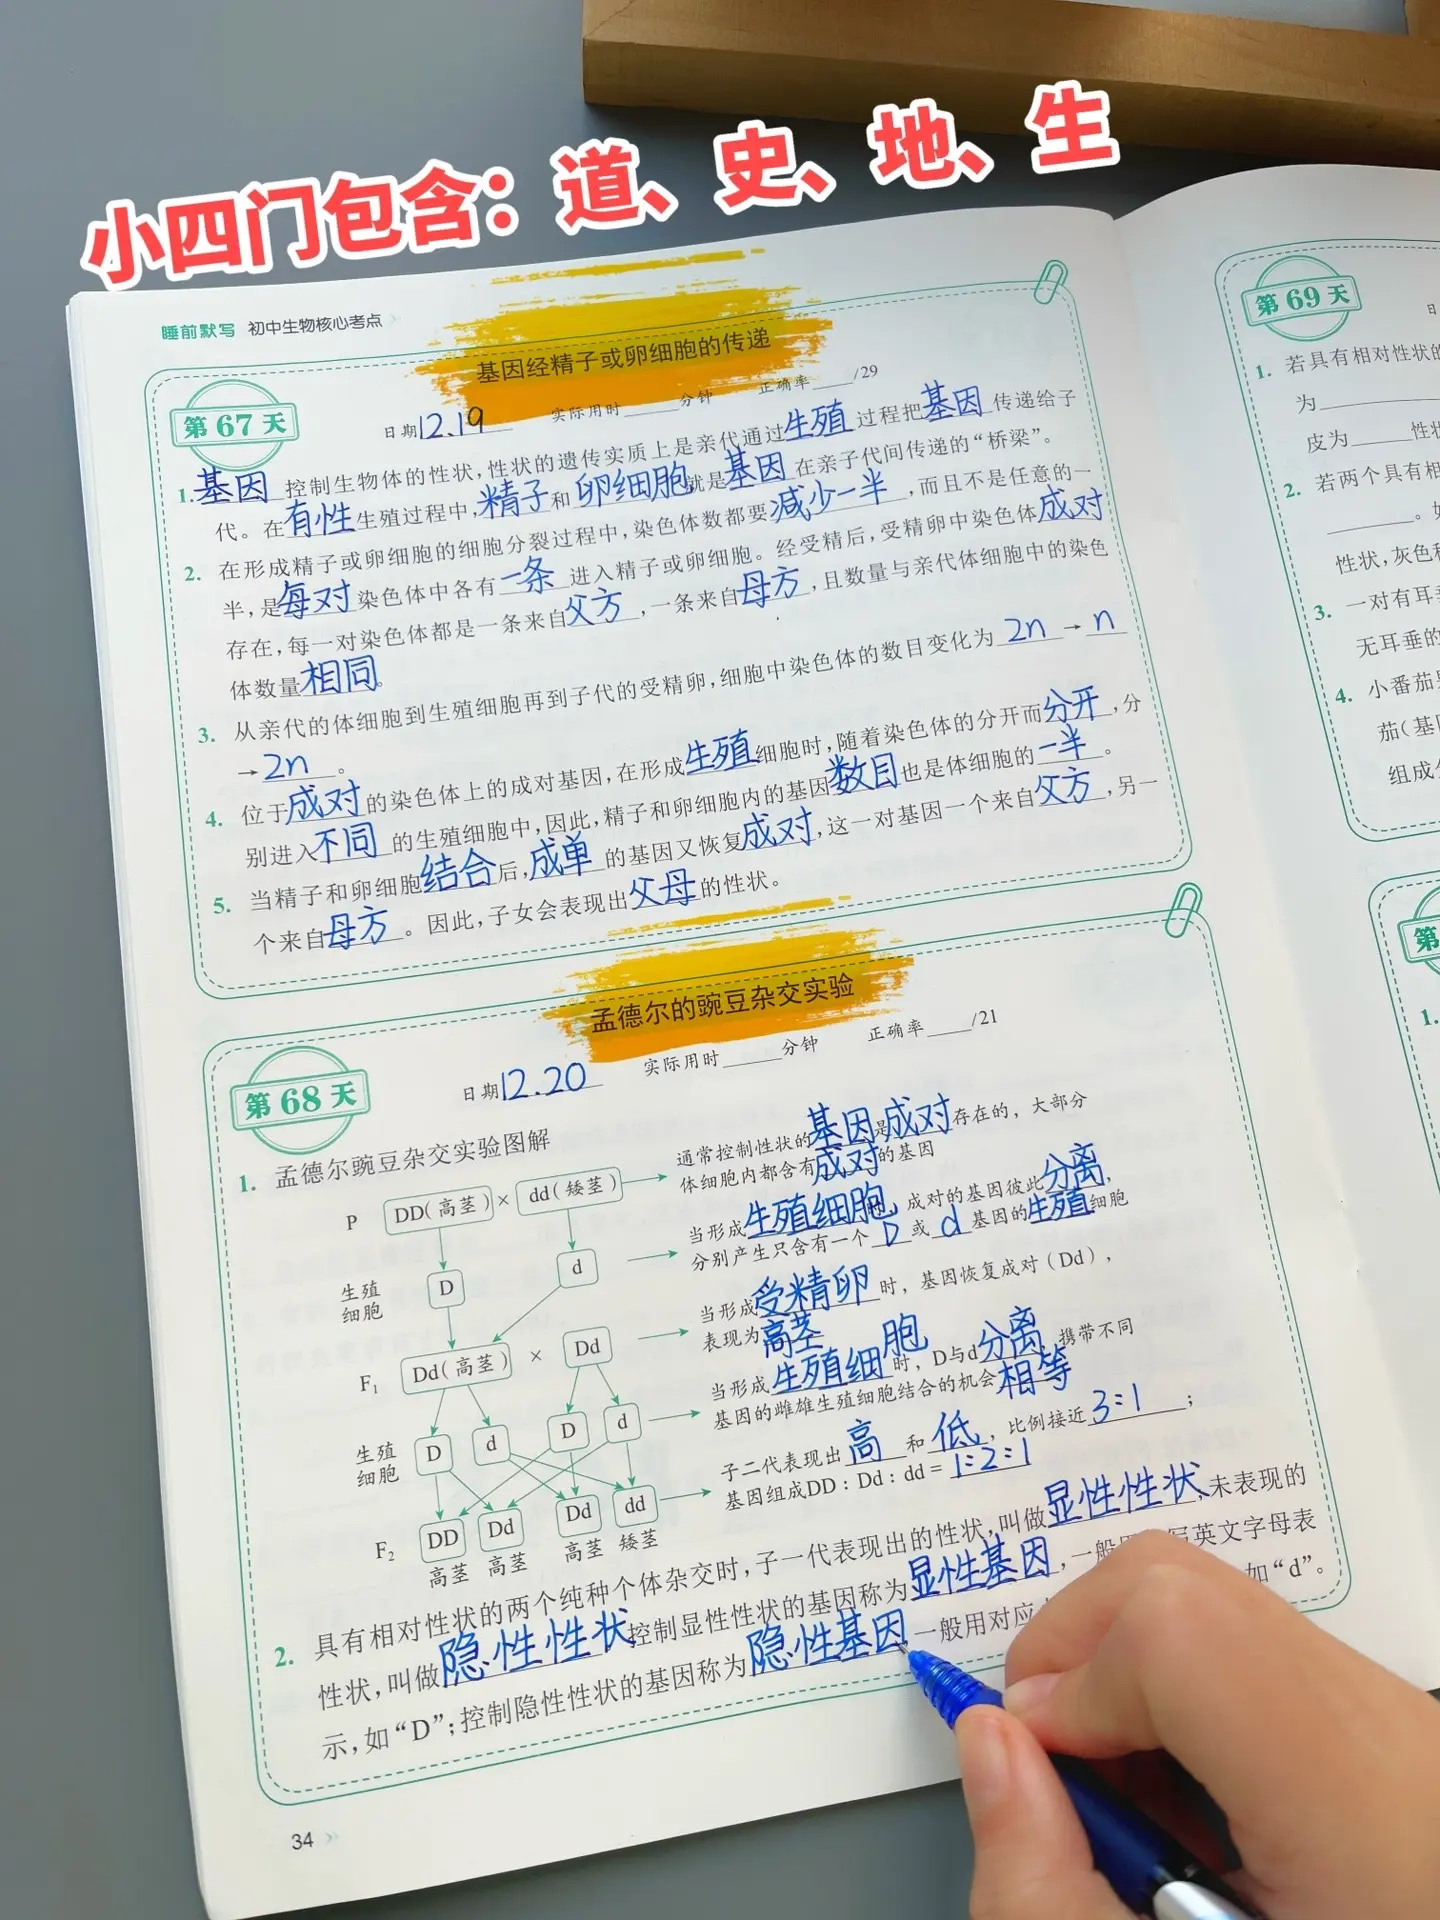 小四门包含：道、史、地、生
睡前默写 初中生物核心考点
基因经精子或卵细胞的传递
第 67 天
日期12.19 实际用时____分钟 正确率____/29
1.基因控制生物体的性状，性状的遗传实质上是亲代通过生殖过程把基因传递给子
代。在有性生殖过程中，精子和卵细胞就是基因在亲子代间传递的“桥梁”。
2. 在形成精子或卵细胞的细胞分裂过程中，染色体数都要减少一半，而且不是任意的一
半，是每对染色体中各有一条进入精子或卵细胞。经受精后，受精卵中染色体成对
存在，每一对染色体都是一条来自父方，一条来自母方，且数量与亲代体细胞中的染色
体数量相同。
3. 从亲代的体细胞到生殖细胞再到子代的受精卵，细胞中染色体的数目变化为 2n → n
→ 2n 。
4. 位于成对的染色体上的成对基因，在形成生殖细胞时，随着染色体的分开而分开，分
别进入不同的生殖细胞中，因此，精子和卵细胞内的基因数目也是体细胞的一半。
5. 当精子和卵细胞结合后，成单的基因又恢复成对，这一对基因一个来自父方，另一
个来自母方。因此，子女会表现出父母的性状。
孟德尔的豌豆杂交实验
第 68 天
日期12.20 实际用时____分钟 正确率____/21
1. 孟德尔豌豆杂交实验图解
P DD(高茎) × dd(矮茎)
通常控制性状的基因是成对存在的，大部分
体细胞内都含有成对的基因
生殖
细胞
D d
当形成生殖细胞时，成对的基因彼此分离，
分别产生只含有一个 D 或 d 基因的生殖细胞
F₁ Dd(高茎) × Dd
当形成受精卵时，基因恢复成对(Dd)，
表现为高茎
生殖
细胞
D d D d
当形成生殖细胞时，D与d分离，携带不同
基因的雌雄生殖细胞结合的机会相等
F₂ DD Dd Dd dd
高茎 高茎 高茎 矮茎
子二代表现出高和低，比例接近 3:1 ；
基因组成DD：Dd：dd＝1:2:1
2. 具有相对性状的两个纯种个体杂交时，子一代表现出的性状，叫做显性性状，未表现的
性状，叫做隐性性状控制显性性状的基因称为显性基因，一般用 写英文字母表
示，如“D”；控制隐性性状的基因称为隐性基因，一般用对应 如“d”。
34
第 69 天
日
1. 若具有相对性状的
为
皮为____性状
2. 若两个具有相
。如
性状，灰色
3. 一对有耳垂
无耳垂的
4. 小番茄果
茄(基
组成
第
1.